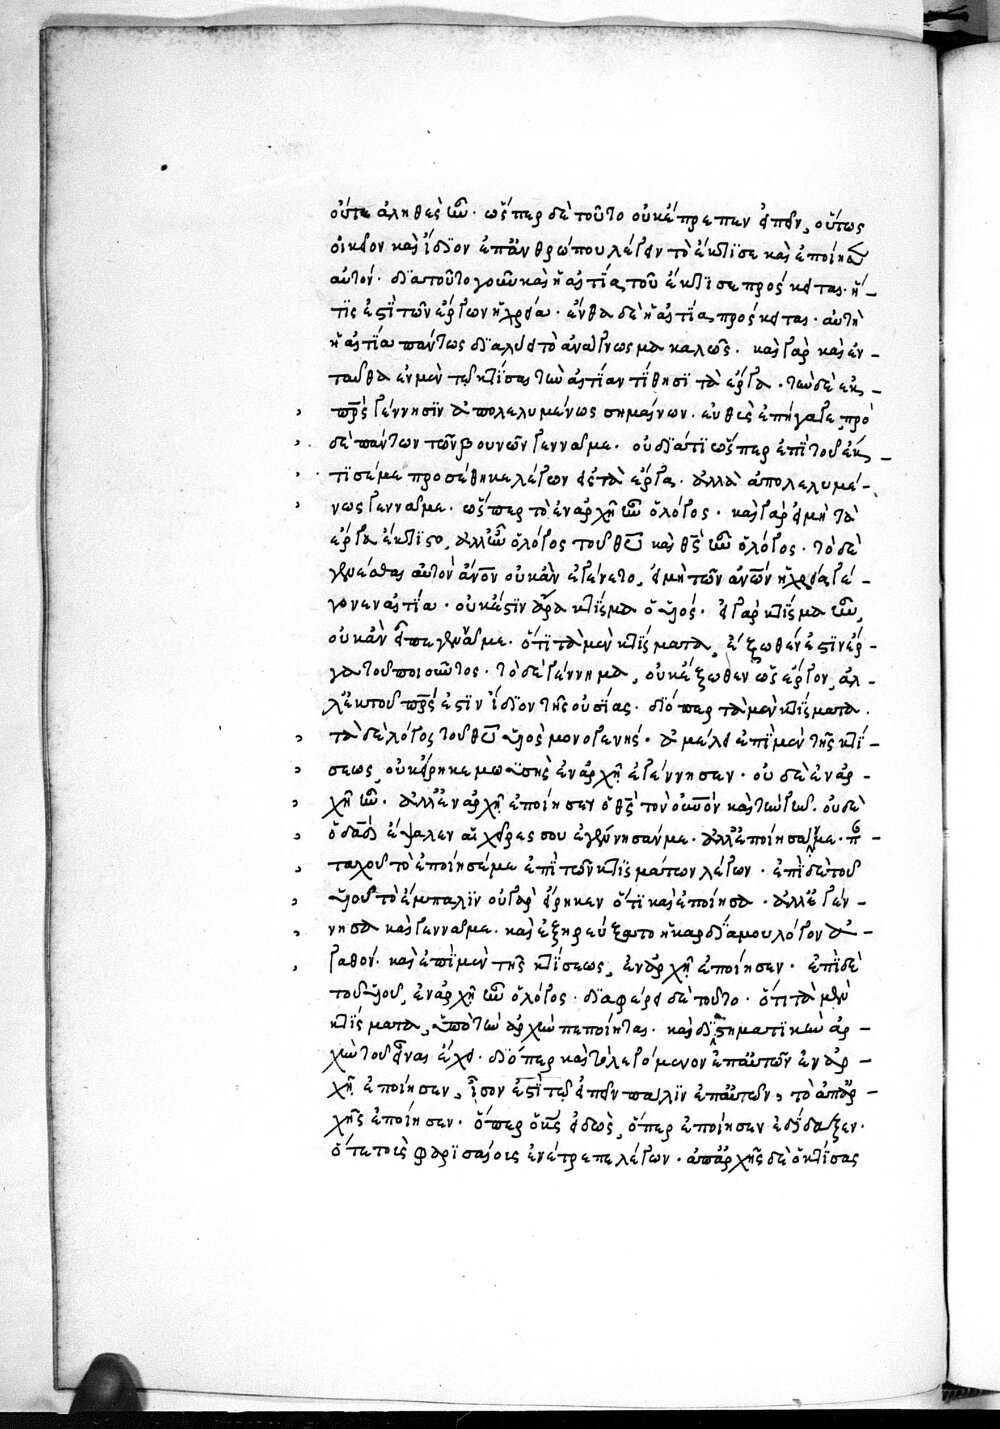 οὔτε ἀληθὲς ἦν. ὥσπερ δὲ τοῦτο οὐκ ἔπρεπεν εἰπεῖν, οὕτως
οἰκεῖον καὶ ἴδϊον ἐπ' ἀνθρώπου λέγειν τὸ ἔκτϊσε καὶ ἐποίησεν
αὐτόν. δϊὰ τοῦτο γοῦν καὶ ἡ αἰτία τοῦ ἔκτϊσε πρόσκειται. ἥ-
τϊς ἐστὶ τῶν ἔργων ἡ χρεία. ἔνθα δὲ ἡ αἰτία πρόσκειται. αὐτὴ
ἡ αἰτία πάντως δϊαλύει τὸ ἀνάγνωσμα καλῶς. καὶ γὰρ καὶ ἐν-
ταῦθα ἐν μὲν τῷ κτίσαι τὴν αἰτίαν τίθησϊ τὰ ἔργα. τὴν δὲ ἐκ
πρς γέννησϊν ἀπολελυμένως σημαίνων. εὐθὺς ἐπήγαγε, πρὸ
δὲ πάντων τῶν βουνῶν γεννᾶ με. οὐ δϊατϊ ὥσπερ ἐπὶ τοῦ ἔκ-
τϊσέ με προσέθηκε λέγων εἰς τὰ ἔργα. ἀλλὰ ἀπολελυμέ-
νως γεννᾶ με. ὥσπερ τὸ ἐν ἀρχῆ ἦν ὁ λόγος. καὶ γὰρ εἰ μὴ τὰ
ἔργα ἐκτίζετο, ἀλλ' ἦν ὁ λόγος τοῦ θυ καὶ θς ἦν ὁ λόγος. τὸ δὲ
γενέσθαι αὐτὸν ἄνον οὐκ ἂν ἐγένετο, εἰ μὴ τῶν ἀνων ἡ χρεία γέ-
γονεν αἰτία. οὐκ ἔστϊν ἄρα κτίσμα ὁ υἱός. εἰ γὰρ κτίσμα ἦν,
οὐκ ἂν εἶπε γεννᾶ με. ὅτι τὰ μὲν κτίσματα, ἔξωθέν ἐστϊν ἔρ-
γα τοῦ ποιοῦντος. τὸ δὲ γέννημα, οὐκ ἔξωθεν ὡς ἔργον, ἀλ-
λ' ἐκ τοῦ πρς ἐστϊν ἴδϊον τῆς οὐσίας. δϊόπερ τὰ μὲν κτίσματα.
τὰ δὲ λόγος τοῦ θυ υἱὸς μονογενής. ἀμέλει ἐπὶ μὲν τῆς κτί-
σεως, οὐκ εἴρηκε μωϋσῆς ἐν ἀρχῆ ἐγέννησεν. οὐ δὲ ἐν ἀρ-
χῆ ἦν. ἀλλ' ἐν ἀρχῆ ἐποίησεν ὁ θς τὸν οὐνον καὶ τὴν γῆν. οὐδὲ
ὁ δαδ ἔψαλεν αἱ χεῖρες σου ἐγέννησάν με. ἀλλ' ἐποίησάν με. π-
ταχοῦ τὸ ἐποίησέ με ἐπὶ τῶν κτϊσμάτων λέγων. ἐπὶ δὲ τοῦ
υἱοῦ τὸ ἔμπαλϊν οὐ γὰρ εἴρηκεν ὅτϊ καὶ ἐποίησα. ἀλλ' ἐγέν-
νησα καὶ γεννᾶ με. καὶ ἐξηρεύξατο ἡ καρδία μου λόγον ἀ-
γαθόν. καὶ ἐπὶ μὲν τῆς κτίσεως, ἐν ἀρχῆ ἐποίησεν. ἐπὶ δὲ
τοῦ υἱοῦ, ἐν ἀρχῆ ἦν ὁ λόγος. δϊαφέρει δὲ τοῦτο. ὅτϊ τὰ μὲν
κτίσματα, ὑπὸ τὴν ἀρχὴν πεποίηται. καὶ δϊαστηματϊκὴν ἀρ-
χὴν τοῦ εἶναι ἔχει. δϊόπερ καὶ τὸ λεγόμενον ἐπ' αὐτῶν ἐν ἀρ-
χῆ ἐποίησεν, ἶσον ἐστὶ τῷ εἰπεῖν πάλϊν ἐπ' αὐτῶν, τὸ ἀπ' ἀρ-
χῆς ἐποίησεν. ὅπερ ὁ κς εἰδὼς, ὅπερ ἐποίησεν ἐδίδαξεν.
ὅτε τοὶς φαρϊσαίοις ἐνέτρεπε λέγων. ἀπ' ἀρχῆς δὲ ὁ κτίσας